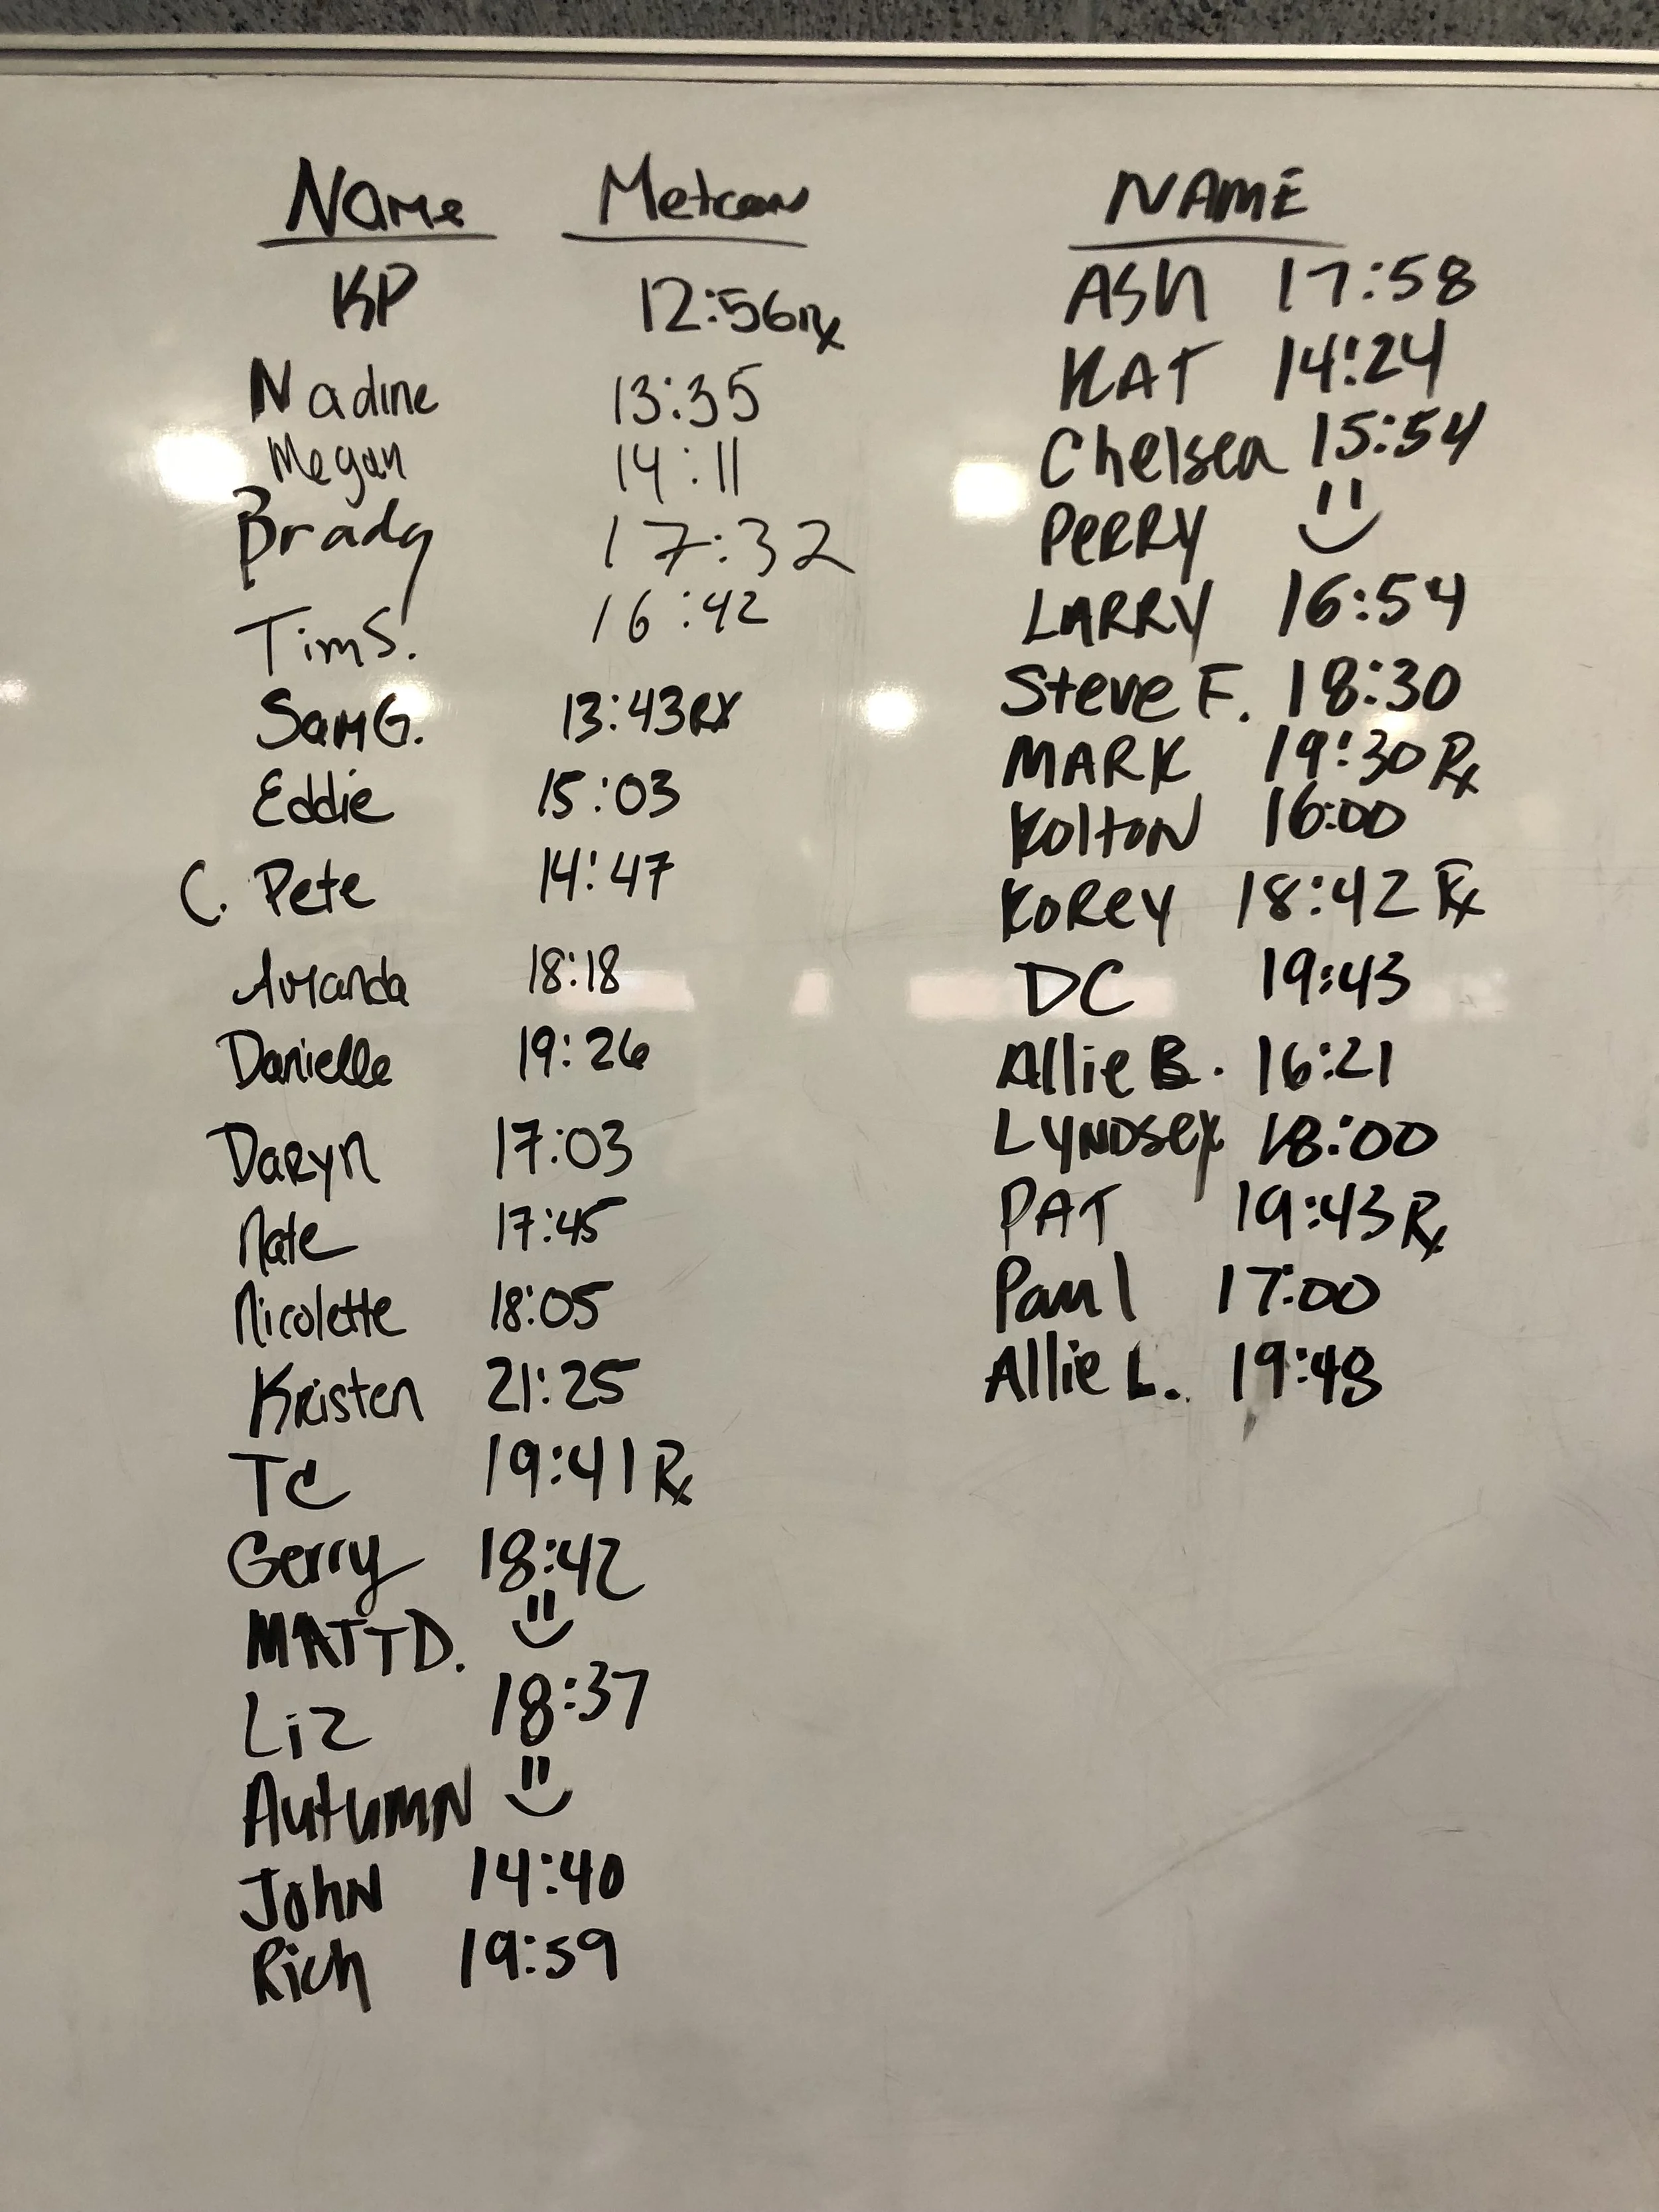 Name Metcon
KP 12:56 Rx
Nadine 13:35
Megan 14:11
Brady 17:32
Tim S. 16:42
Sam G. 13:43 RX
Eddie 15:03
C. Pete 14:47
Amanda 18:18
Danielle 19:26
Daryn 17:03
Nate 17:45
Nicolette 18:05
Kristen 21:25
TC 19:41 Rx
Gerry 18:42
MATT D.
Liz 18:37
Autumn
John 14:40
Rich 19:59
NAME
ASH 17:58
KAT 14:24
Chelsea 15:54
PERRY
LARRY 16:54
Steve F. 18:30
MARK 19:30 Rx
Kolton 16:00
Korey 18:42 Rx
DC 19:43
Allie B. 16:21
Lyndsey 18:00
PAT 19:43 Rx
Paul 17:00
Allie L. 19:48